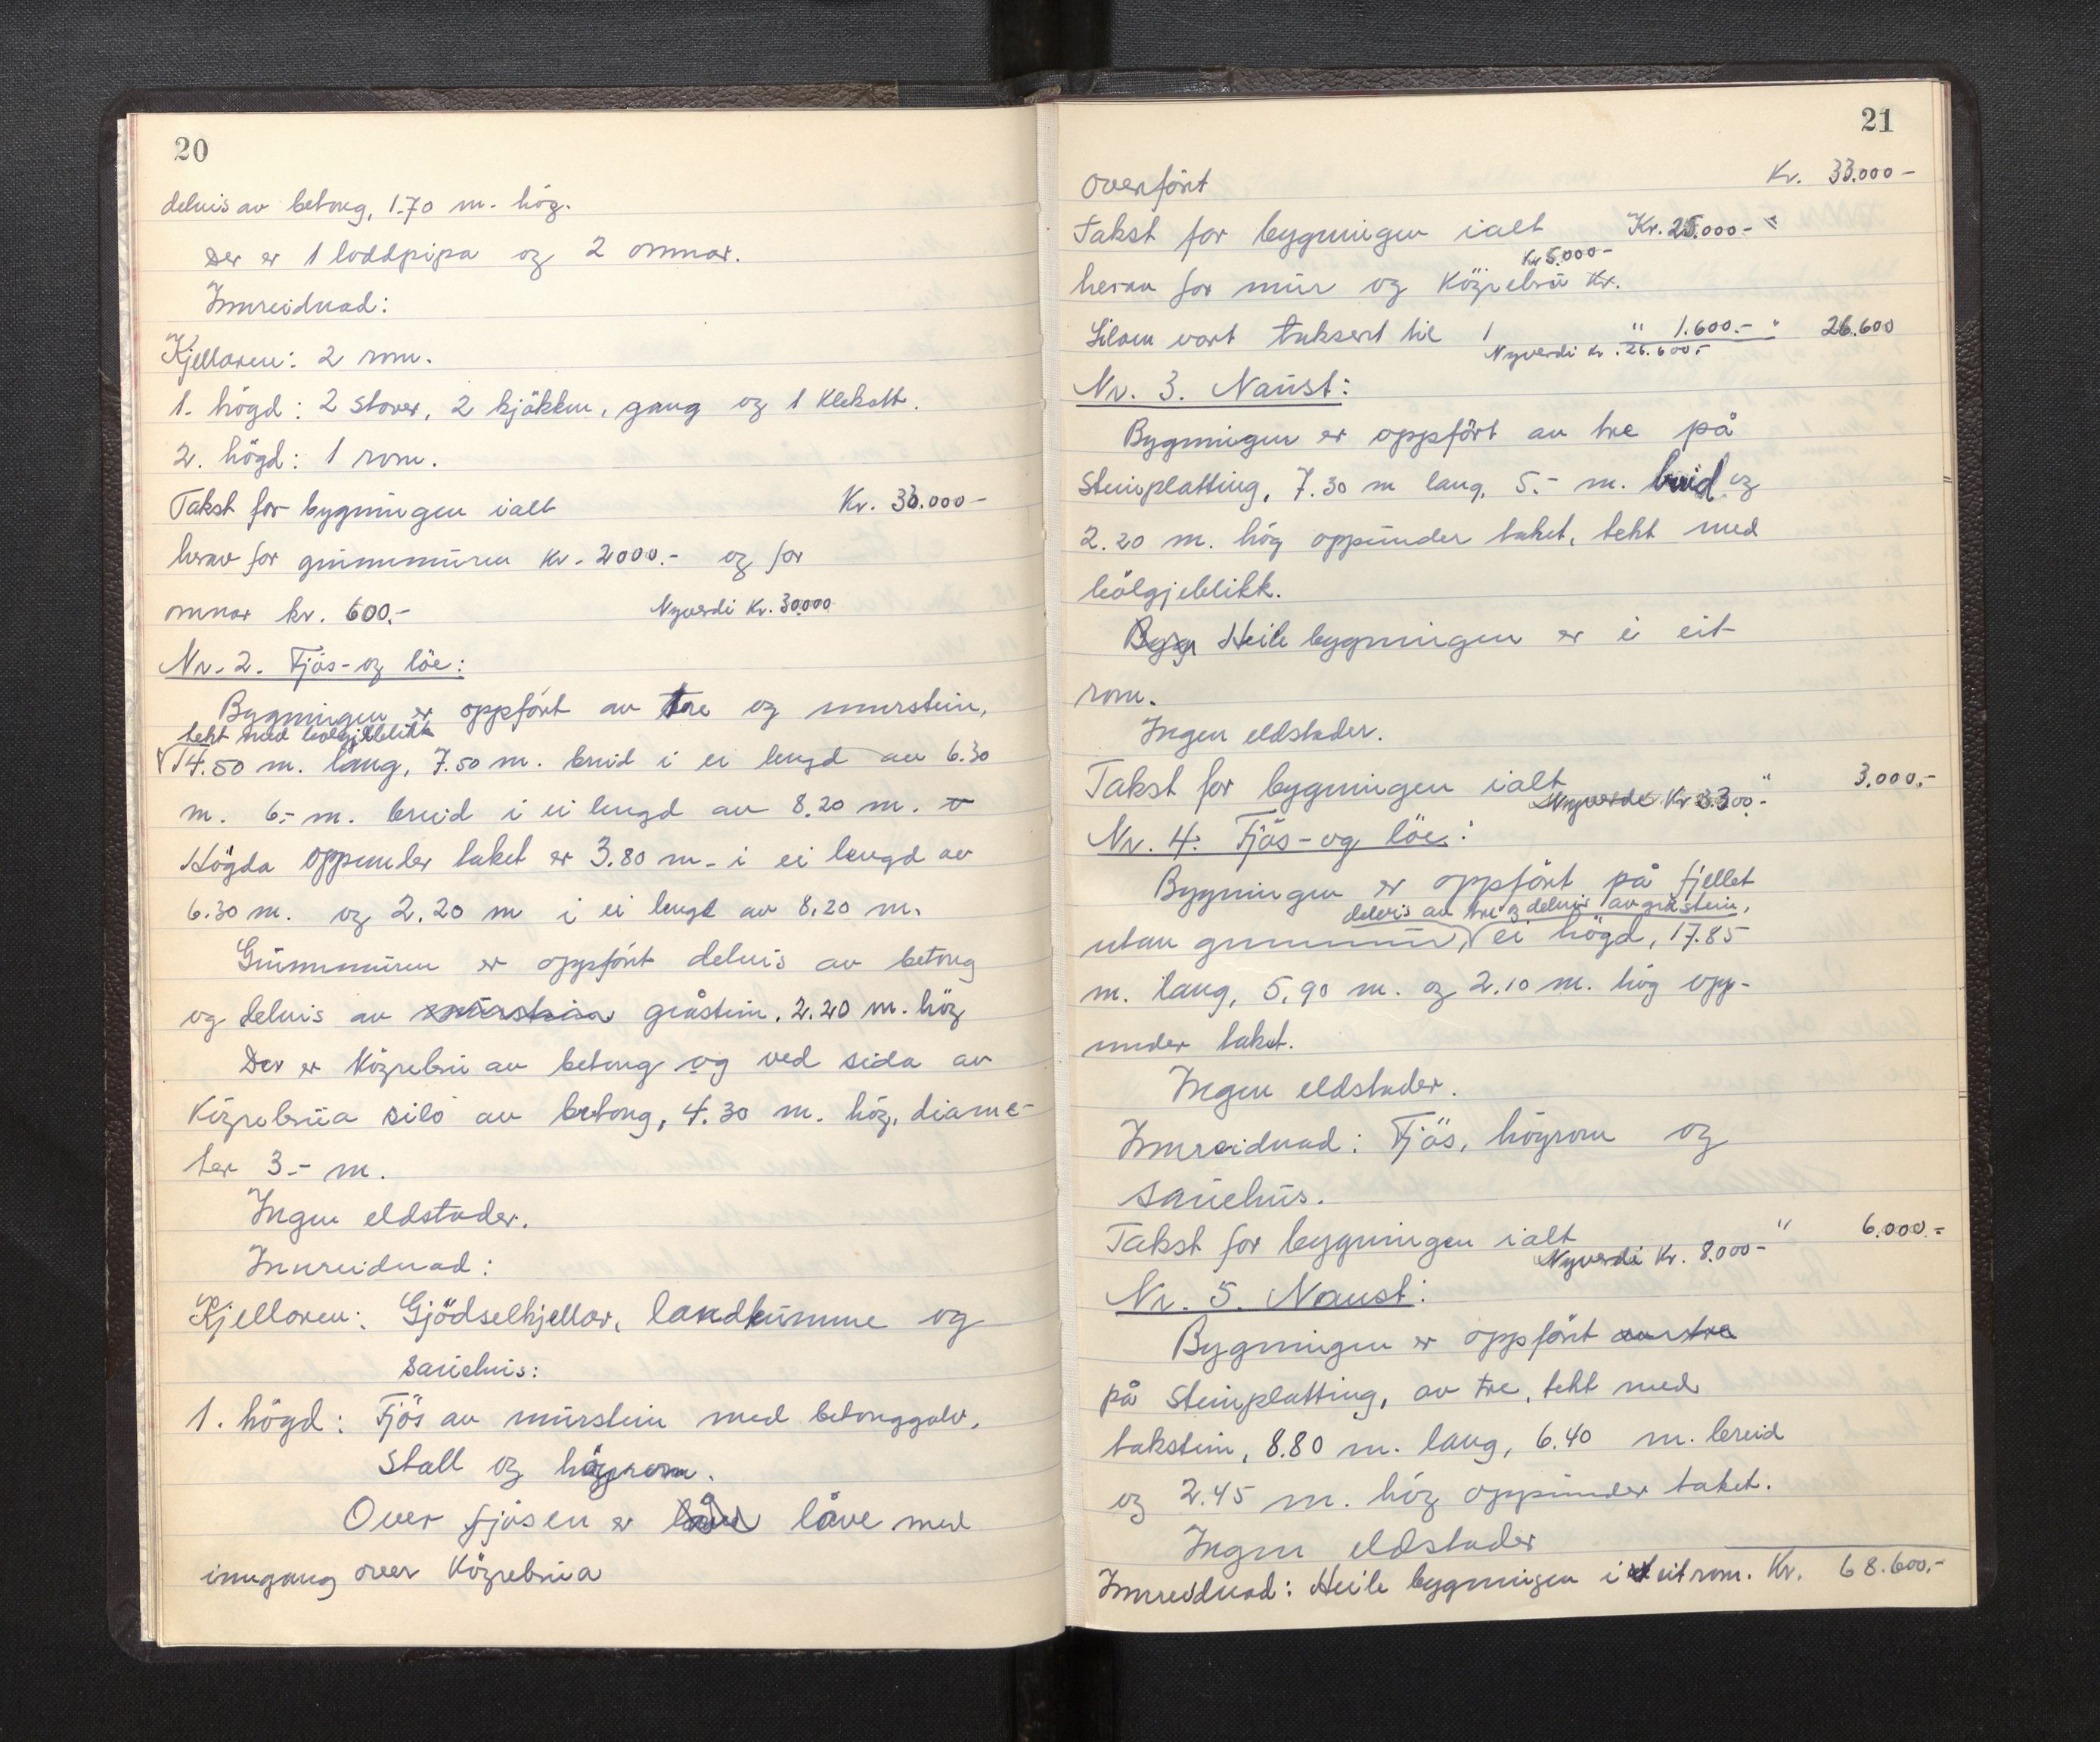 20
delvis av betong, 1.70 m. hög.
Der er 1 loddpipa og 2 omnar.
Innreidnad:
Kjellaren: 2 rom.
1. högd: 2 stover, 2 kjökken, gang og 1 klekott.
2. högd: 1 rom.
Takst for bygningen ialt Kr. 33.000-
herav for grunnmúren kr. 2000.- og for
omnar kr. 600.- Nyverdi Kr. 30.000
Nr. 2. Fjös- og löe:
Bygningen er oppfört av tre og murstein,
tekt med bölgjeblikk
14.50 m. lang, 7.50 m. breid i ei lengd av 6.30
m. 6.- m. breid i ei lengd av 8.20 m.
Högda oppunder taket er 3.80 m. i ei lengd av
6.30 m. og 2.20 m i ei lengd av 8.20 m.
Grúnnmúren er oppfört delvis av betong
og delvis av múrstein gråstein. 2.20 m. hög
Der er köyrebrú av betong og ved sida av
köyrebrúa silo av betong, 4.30 m. hög, diame-
ter 3.- m.
Ingen eldstader.
Innreidnad:
Kjellaren: Gjödselkjellar, landkúmme og
saúehús:
1. högd: Fjös av múrstein med betonggolv,
Stall og höyrom.
Over fjösen er låve låve med
inngang over köyrebrúa
21
Overfört Kr. 33.000-
Takst for bygningen ialt Kr. 25.000- "
Kr 5.000-
herav for múr og köyrebrú Kr.
Siloen vart taksert til " 1.600.- " 26.600
Nyverdi kr. 26.600.-
Nr. 3. Naúst:
Bygningen er oppfört av tre på
Steinplatting, 7.30 m lang, 5.- m. breid og
2.20 m. hög oppúnder taket, tekt med
bölgjeblikk.
Bygn Heile bygningen er i eit
rom.
Ingen eldstader.
Takst for bygningen ialt " 3.000.-
Nyverdi Kr 3.300.-
Nr. 4. Fjös- og löe:
Bygningen er oppfört på fjellet
delvis av tre og delvis av gråstein,
utan grunnmúr, ei högd, 17.85
m. lang, 5.90 m. og 2.10 m. hög opp-
under taket.
Ingen eldstader.
Innreidnad: Fjös, höyrom og
saúehús.
Takst for bygningen ialt " 6.000.-
Nyverdi Kr. 8.000-
Nr. 5. Naust:
Bygningen er oppfört av tre
på Steinplatting, av tre, tekt med
takstein, 8.80 m. lang, 6.40 m. breid
og 2.45 m. hög oppúnder taket.
Ingen eldstader
Innreidnad: Heile bygningen i eit rom. Kr. 68.600.-